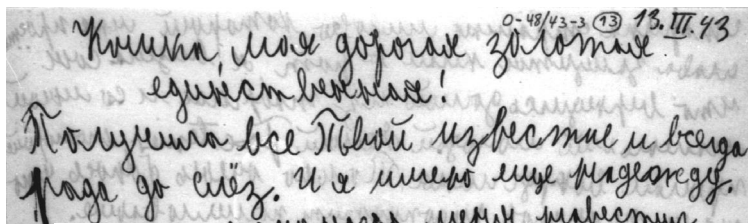 0-48/43-3 (13) 13.III.43
Кошка, моя дорогая золотая
единственная!
Получила все Твои известие и всегда
рада до слёз. И я имею еще надежду.